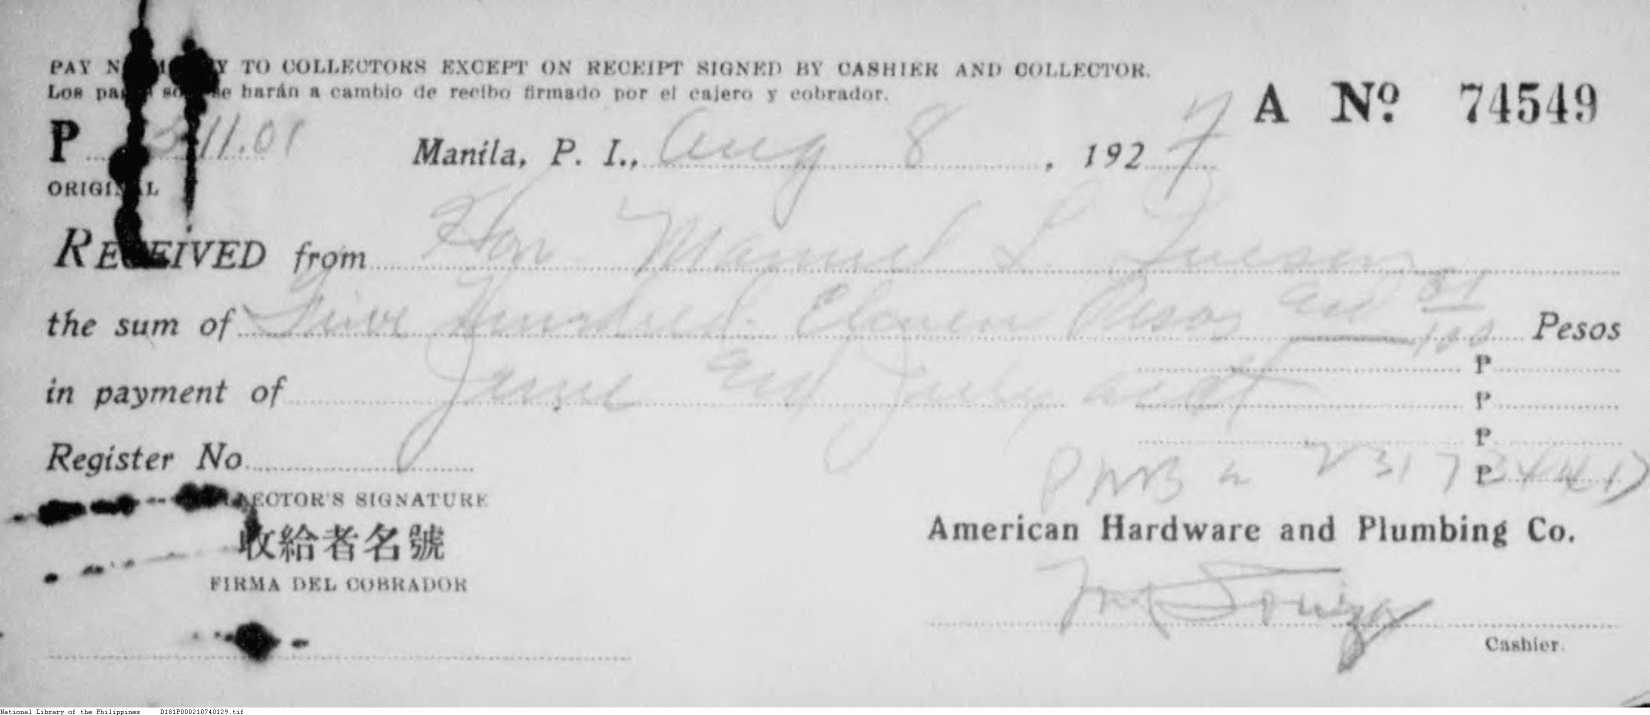 PAY NO MONEY TO COLLECTORS EXCEPT ON RECEIPT SIGNED BY CASHIER AND COLLECTOR.
Los pagos solo se harán a cambio de recibo firmado por el cajero y cobrador.
A Nº 74549
P 511.01 Manila, P. I., Aug 8, 1927
ORIGINAL
RECEIVED from Hon Manuel L. Quezon
the sum of Five Hundred Eleven Pesos and 01/100 Pesos
in payment of June and July acct
P
P
P
Register No
P
PNB
COLLECTOR'S SIGNATURE
收給者名號
American Hardware and Plumbing Co.
FIRMA DEL COBRADOR
Souza
Cashier.
National Library of the Philippines D181P000210740129.tif